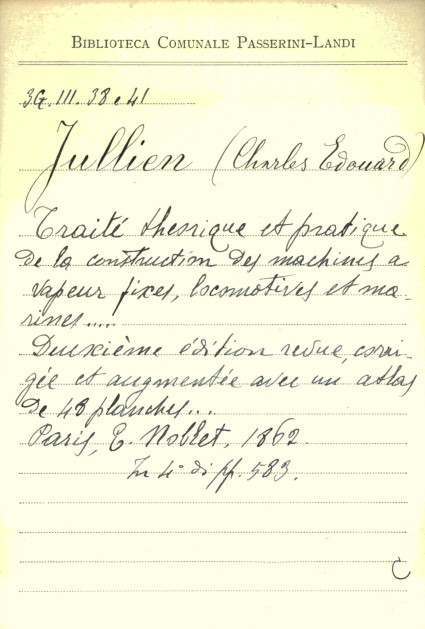 BIBLIOTECA COMUNALE PASSERINI-LANDI
3G.III.38 e 41
Jullien (Charles Edouard)
Traité theorique et pratique
de la construction des machines a
vapeur fixes, locomotives et ma-
rines....
Deuxième édition revue, corri-
gée et augmentée avec un atlas
de 48 planches...
Paris, E. Noblet, 1862.
In 4° di pp. 583.
C